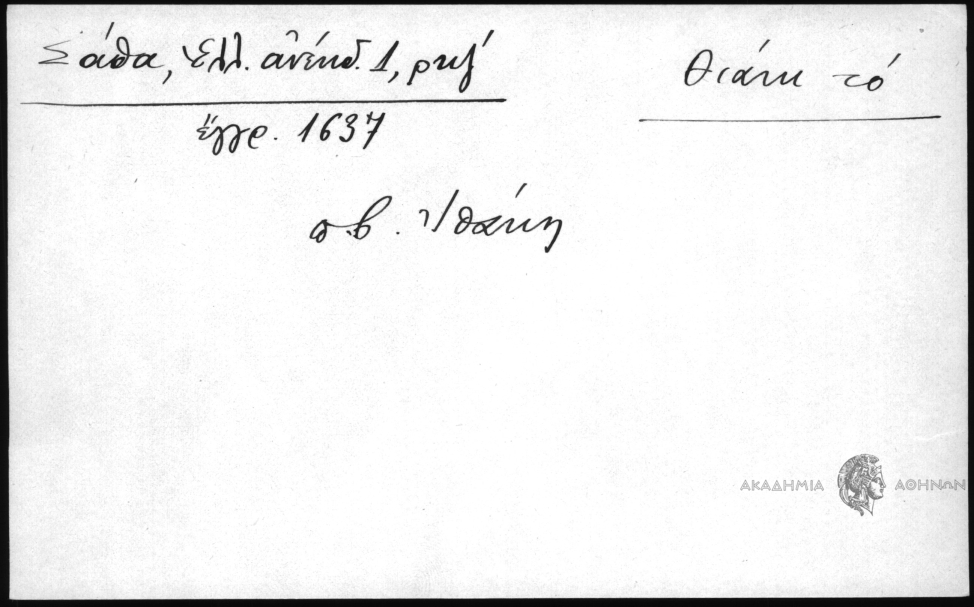 Σάθα, Ἑλλ. ἀνέκδ. 1, ρκζ΄
ἔγγρ. 1637
Θιάκη τό
πβ. Ἰθάκη
ΑΚΑΔΗΜΙΑ ΑΘΗΝΩΝ